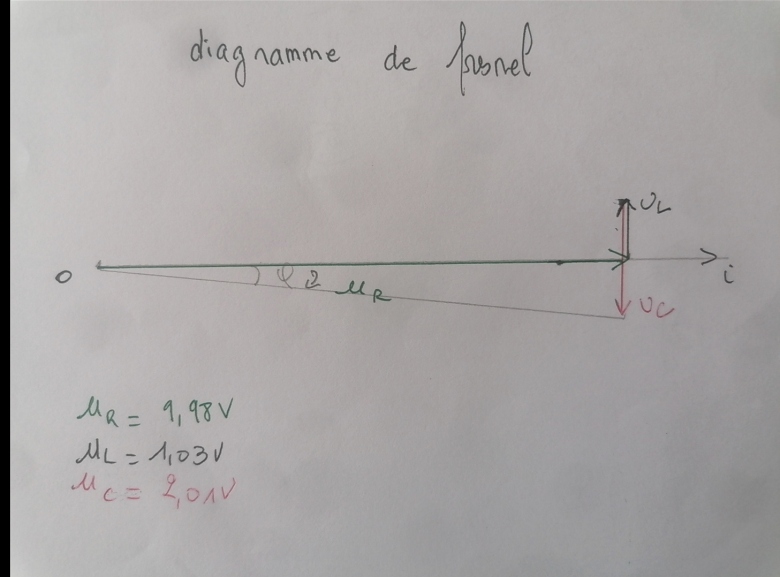 diagramme de fresnel
UL
O φ2 i
UR
UC
UR = 9,98V
UL = 1,03V
UC = 2,01V